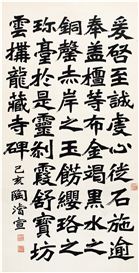 爰啓至誠虔心徙石施逾
奉蓋檀等布金竭黑水之
銅罄赤岸之玉飾纓珞之
於是靈刹霞舒寶坊
雲搆龍藏寺碑
己亥 陶濬宣